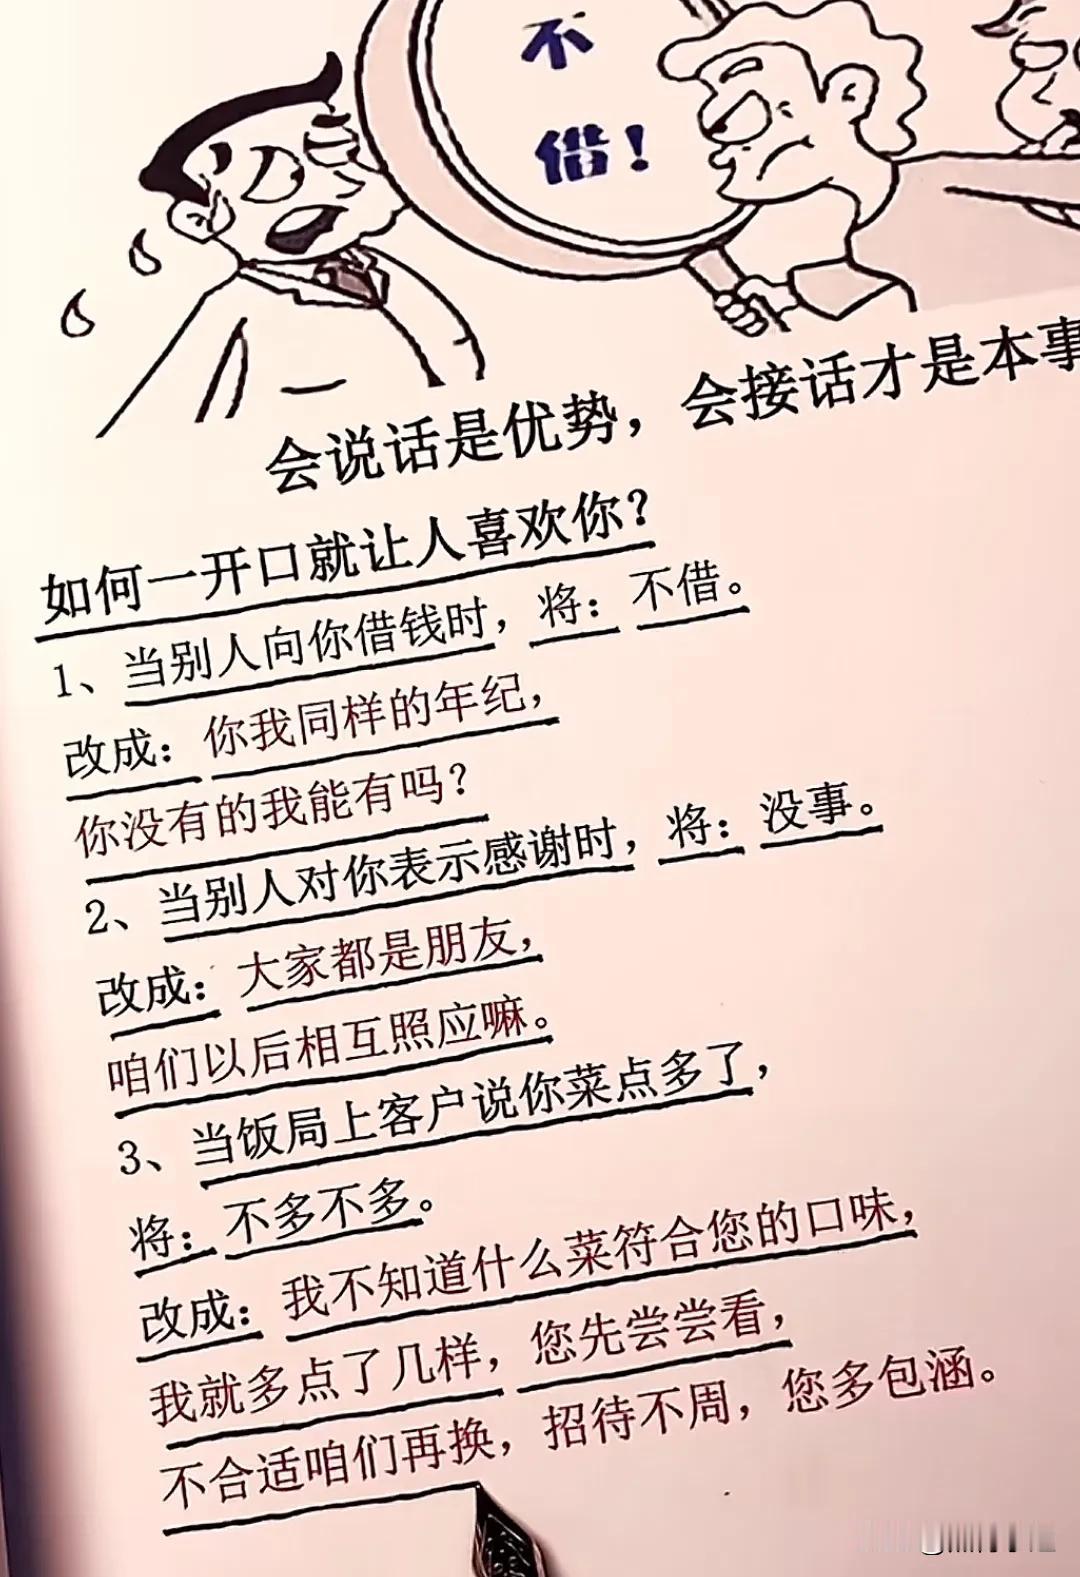 不
借！
会说话是优势，会接话才是本事
如何一开口就让人喜欢你？
1、当别人向你借钱时，将：不借。
改成：你我同样的年纪，
你没有的我能有吗？
2、当别人对你表示感谢时，将：没事。
改成：大家都是朋友，
咱们以后相互照应嘛。
3、当饭局上客户说你菜点多了，
将：不多不多。
改成：我不知道什么菜符合您的口味，
我就多点了几样，您先尝尝看，
不合适咱们再换，招待不周，您多包涵。